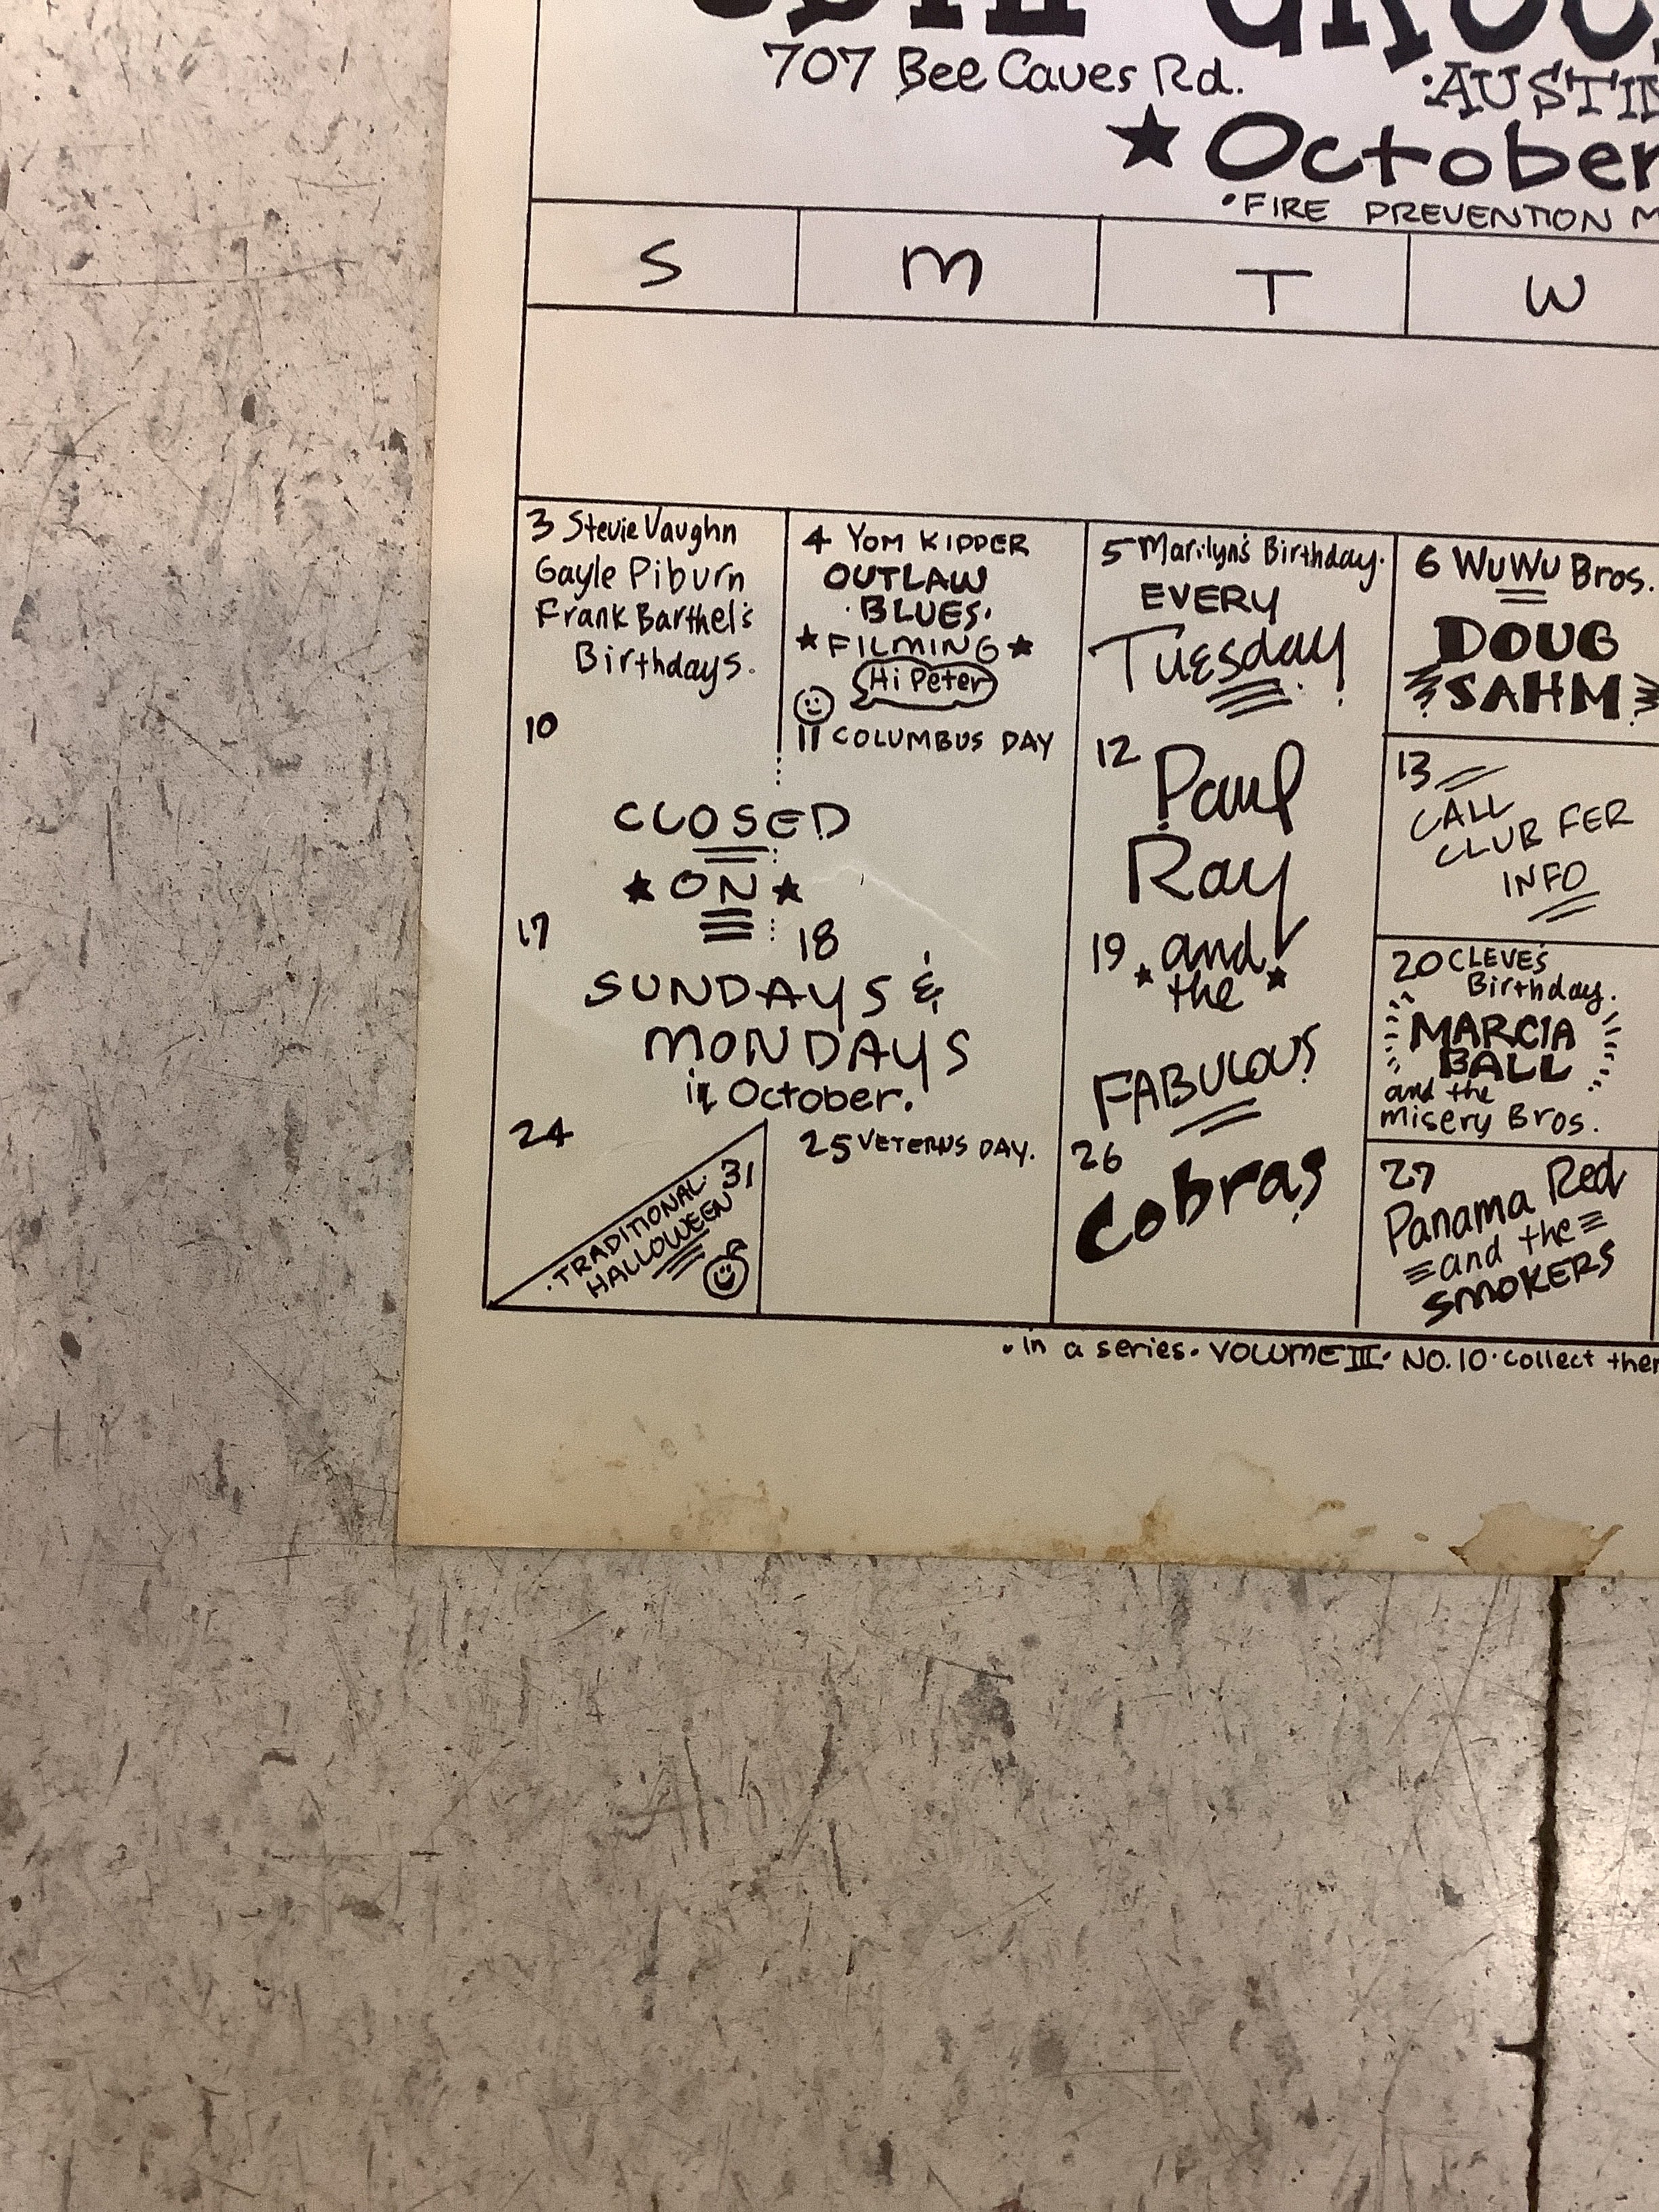 707 Bee Caves Rd.
★ October
• FIRE PREVENTION
S M T W
3 Stevie Vaughn
Gayle Piburn
Frank Barthel's
Birthdays.
4 YOM KIPPER
OUTLAW
·BLUES·
★ FILMING ★
Hi Peter
5 Marilyn's Birthday.
EVERY
Tuesday!
6 WuWu Bros.
DOUG
SAHM
10
11 COLUMBUS DAY
CLOSED
★ ON ★
17
18
SUNDAYS &
MONDAYS
in October.
12 Paul
Ray
19 and
★ the ★
FABULOUS
26
Cobras
13
CALL
CLUB FER
INFO
20 CLEVE'S
Birthday.
MARCIA
BALL
and the
Misery Bros.
24
·TRADITIONAL· 31
HALLOWEEN
25 VETERNS DAY.
27
Panama Red
and the
SMOKERS
• in a series • VOLUME III • NO. 10 • collect